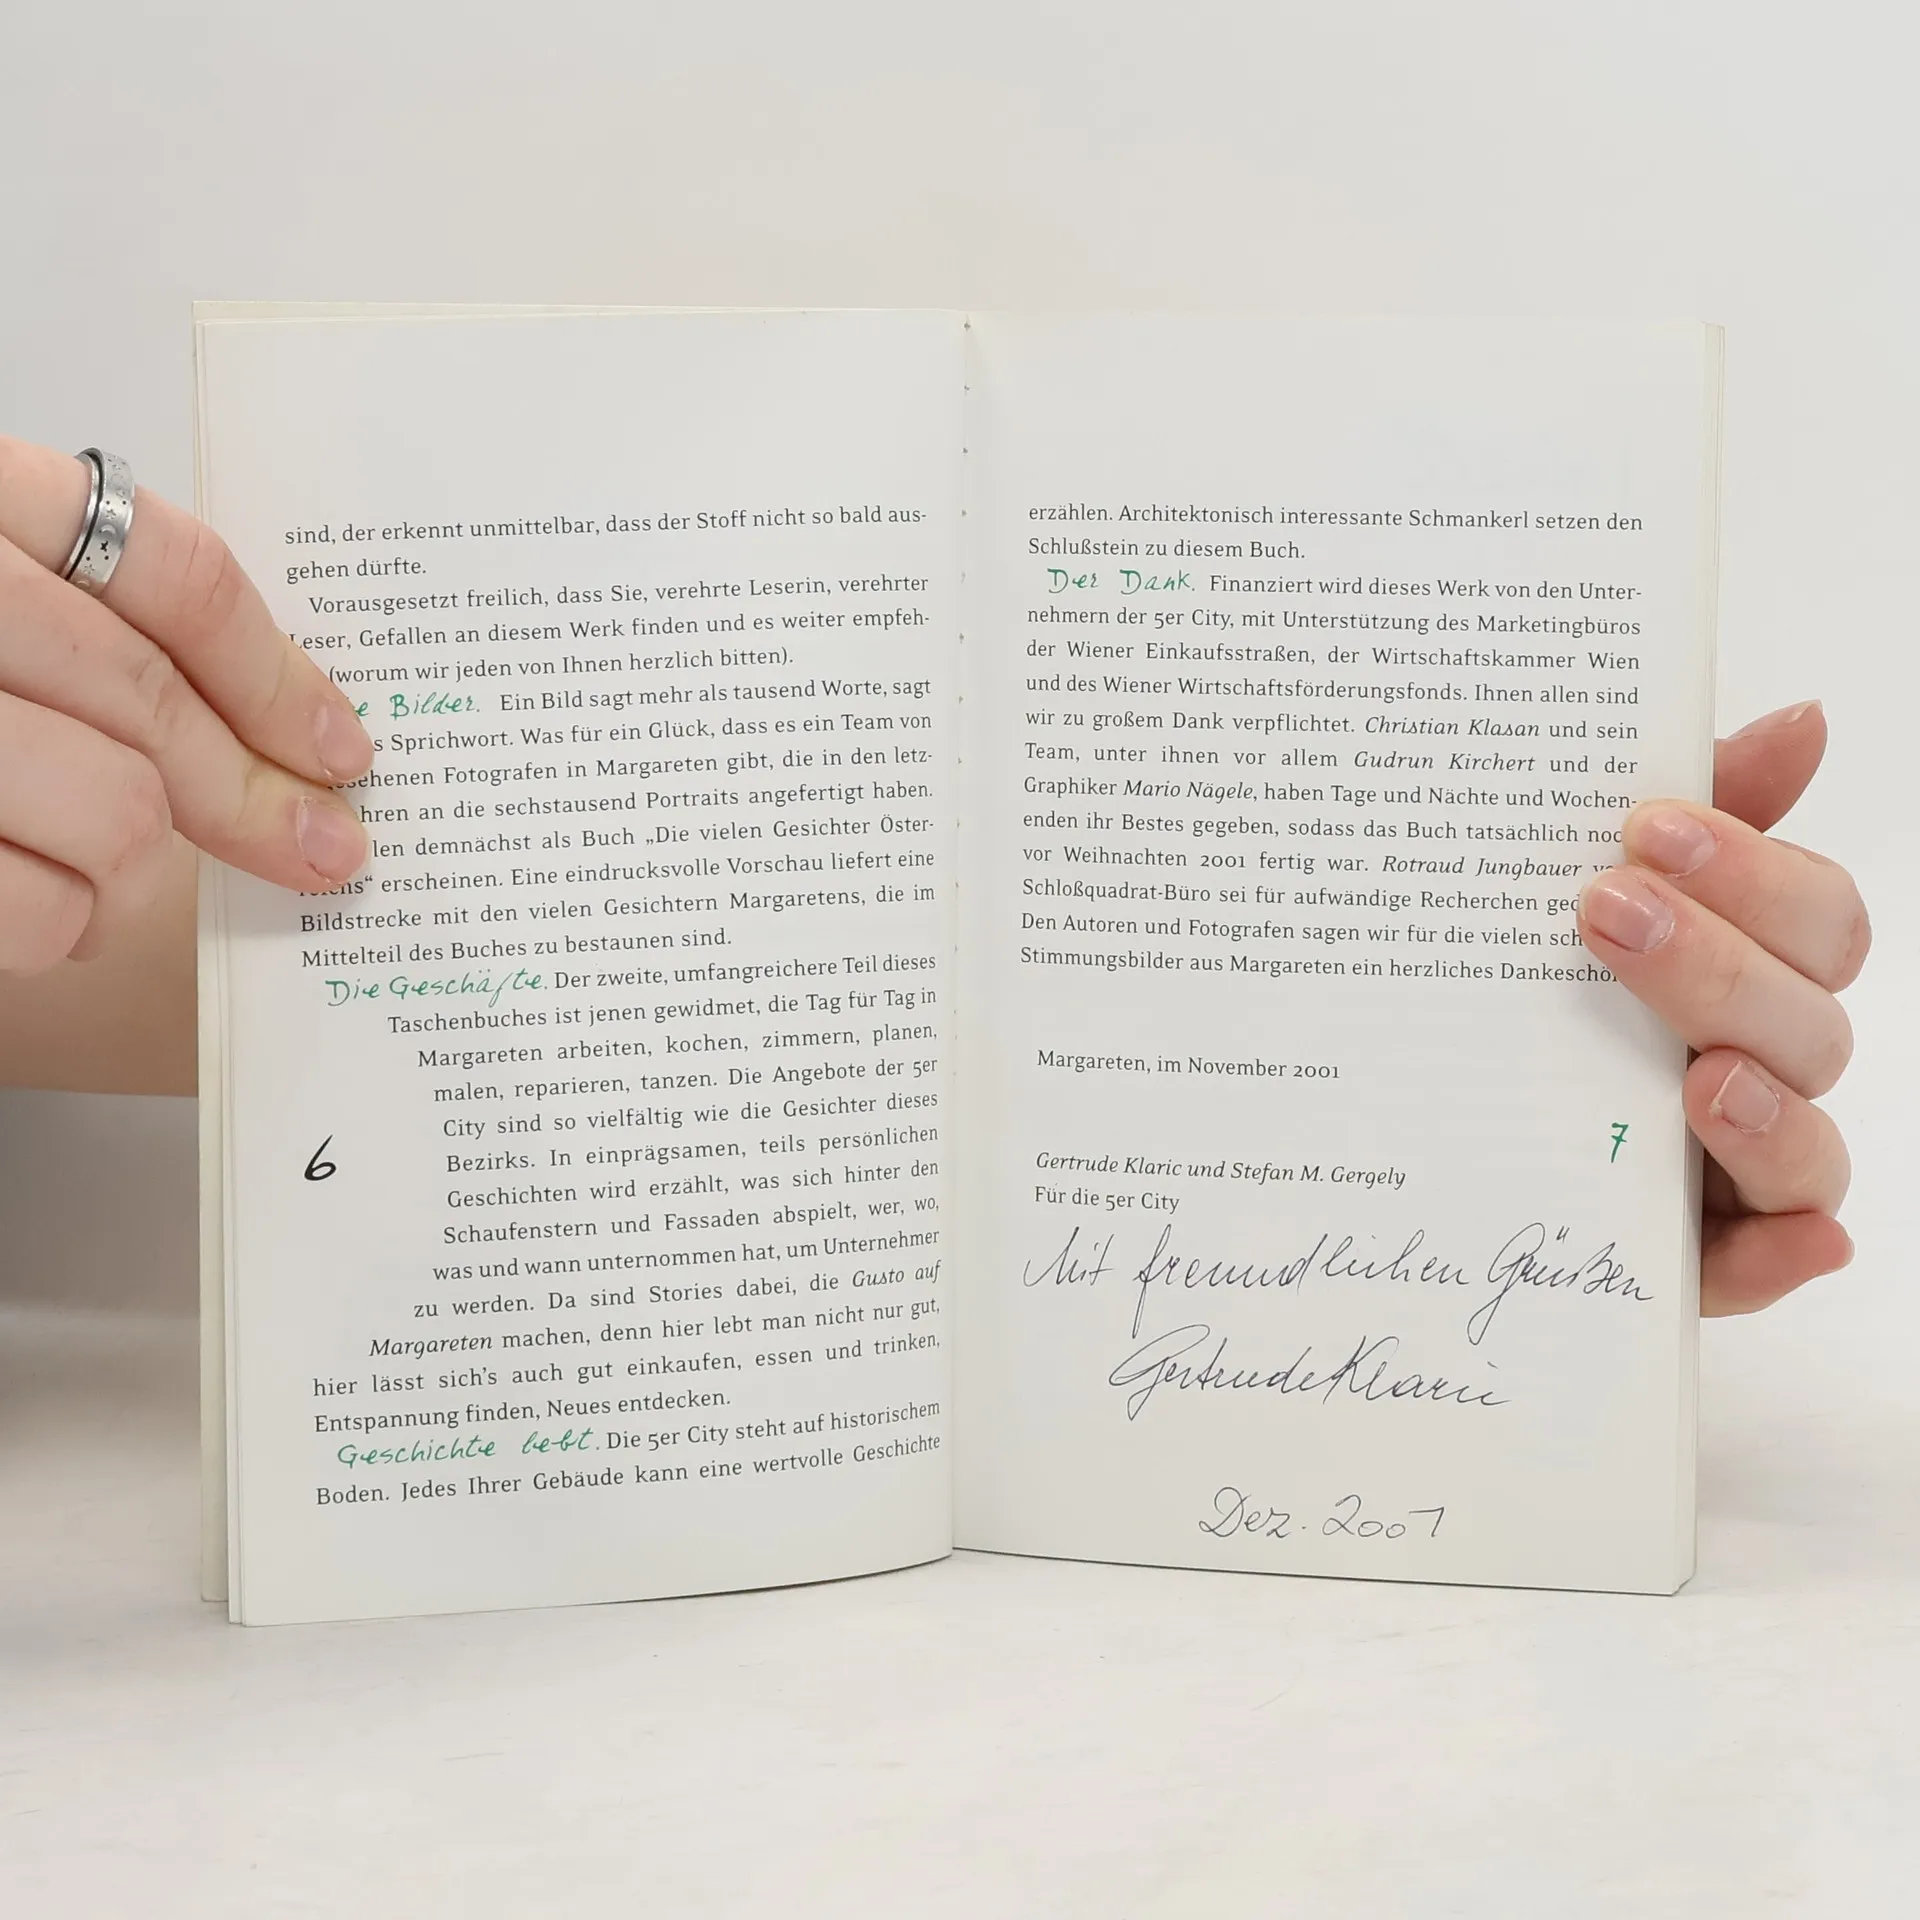 sind, der erkennt unmittelbar, dass der Stoff nicht so bald aus-
gehen dürfte.
Vorausgesetzt freilich, dass Sie, verehrte Leserin, verehrter
Leser, Gefallen an diesem Werk finden und es weiter empfeh-
(worum wir jeden von Ihnen herzlich bitten).
Bilder. Ein Bild sagt mehr als tausend Worte, sagt
Sprichwort. Was für ein Glück, dass es ein Team von
Fotografen in Margareten gibt, die in den letz-
an die sechstausend Portraits angefertigt haben.
demnächst als Buch „Die vielen Gesichter Öster-
reichs“ erscheinen. Eine eindrucksvolle Vorschau liefert eine
Bildstrecke mit den vielen Gesichtern Margaretens, die im
Mittelteil des Buches zu bestaunen sind.
Die Geschäfte. Der zweite, umfangreichere Teil dieses
Taschenbuches ist jenen gewidmet, die Tag für Tag in
Margareten arbeiten, kochen, zimmern, planen,
malen, reparieren, tanzen. Die Angebote der 5er
City sind so vielfältig wie die Gesichter dieses
Bezirks. In einprägsamen, teils persönlichen
Geschichten wird erzählt, was sich hinter den
Schaufenstern und Fassaden abspielt, wer, wo,
was und wann unternommen hat, um Unternehmer
zu werden. Da sind Stories dabei, die Gusto auf
Margareten machen, denn hier lebt man nicht nur gut,
hier lässt sich’s auch gut einkaufen, essen und trinken,
Entspannung finden, Neues entdecken.
Geschichte lebt. Die 5er City steht auf historischem
Boden. Jedes Ihrer Gebäude kann eine wertvolle Geschichte
6
erzählen. Architektonisch interessante Schmankerl setzen den
Schlußstein zu diesem Buch.
Der Dank. Finanziert wird dieses Werk von den Unter-
nehmern der 5er City, mit Unterstützung des Marketingbüros
der Wiener Einkaufsstraßen, der Wirtschaftskammer Wien
und des Wiener Wirtschaftsförderungsfonds. Ihnen allen sind
wir zu großem Dank verpflichtet. Christian Klasan und sein
Team, unter ihnen vor allem Gudrun Kirchert und der
Graphiker Mario Nägele, haben Tage und Nächte und Wochen-
enden ihr Bestes gegeben, sodass das Buch tatsächlich
vor Weihnachten 2001 fertig war. Rotraud Jungbauer
Schloßquadrat-Büro sei für aufwändige Recherchen
Den Autoren und Fotografen sagen wir für die vielen
Stimmungsbilder aus Margareten ein herzliches Dankeschön
Margareten, im November 2001
7
Gertrude Klaric und Stefan M. Gergely
Für die 5er City
Mit freundlichen Grüßen
Gertrude Klaric
Dez. 2001